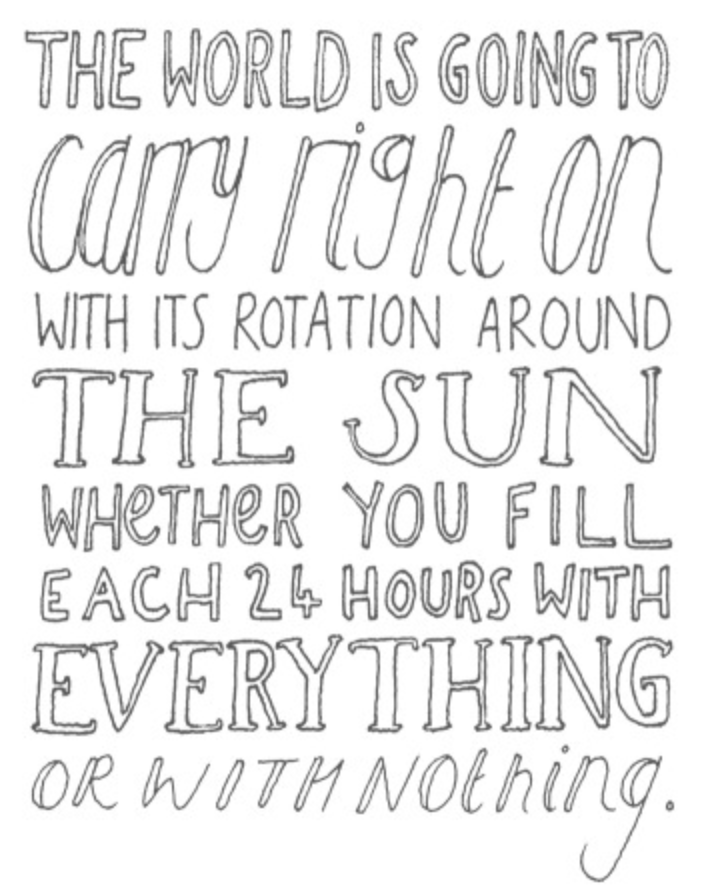 THE WORLD IS GOING TO
carry right on
WITH ITS ROTATION AROUND
THE SUN
WHeTHeR YOU FILL
EACH 24 HOURS WITH
EVERYTHING
OR WITH NOthing.